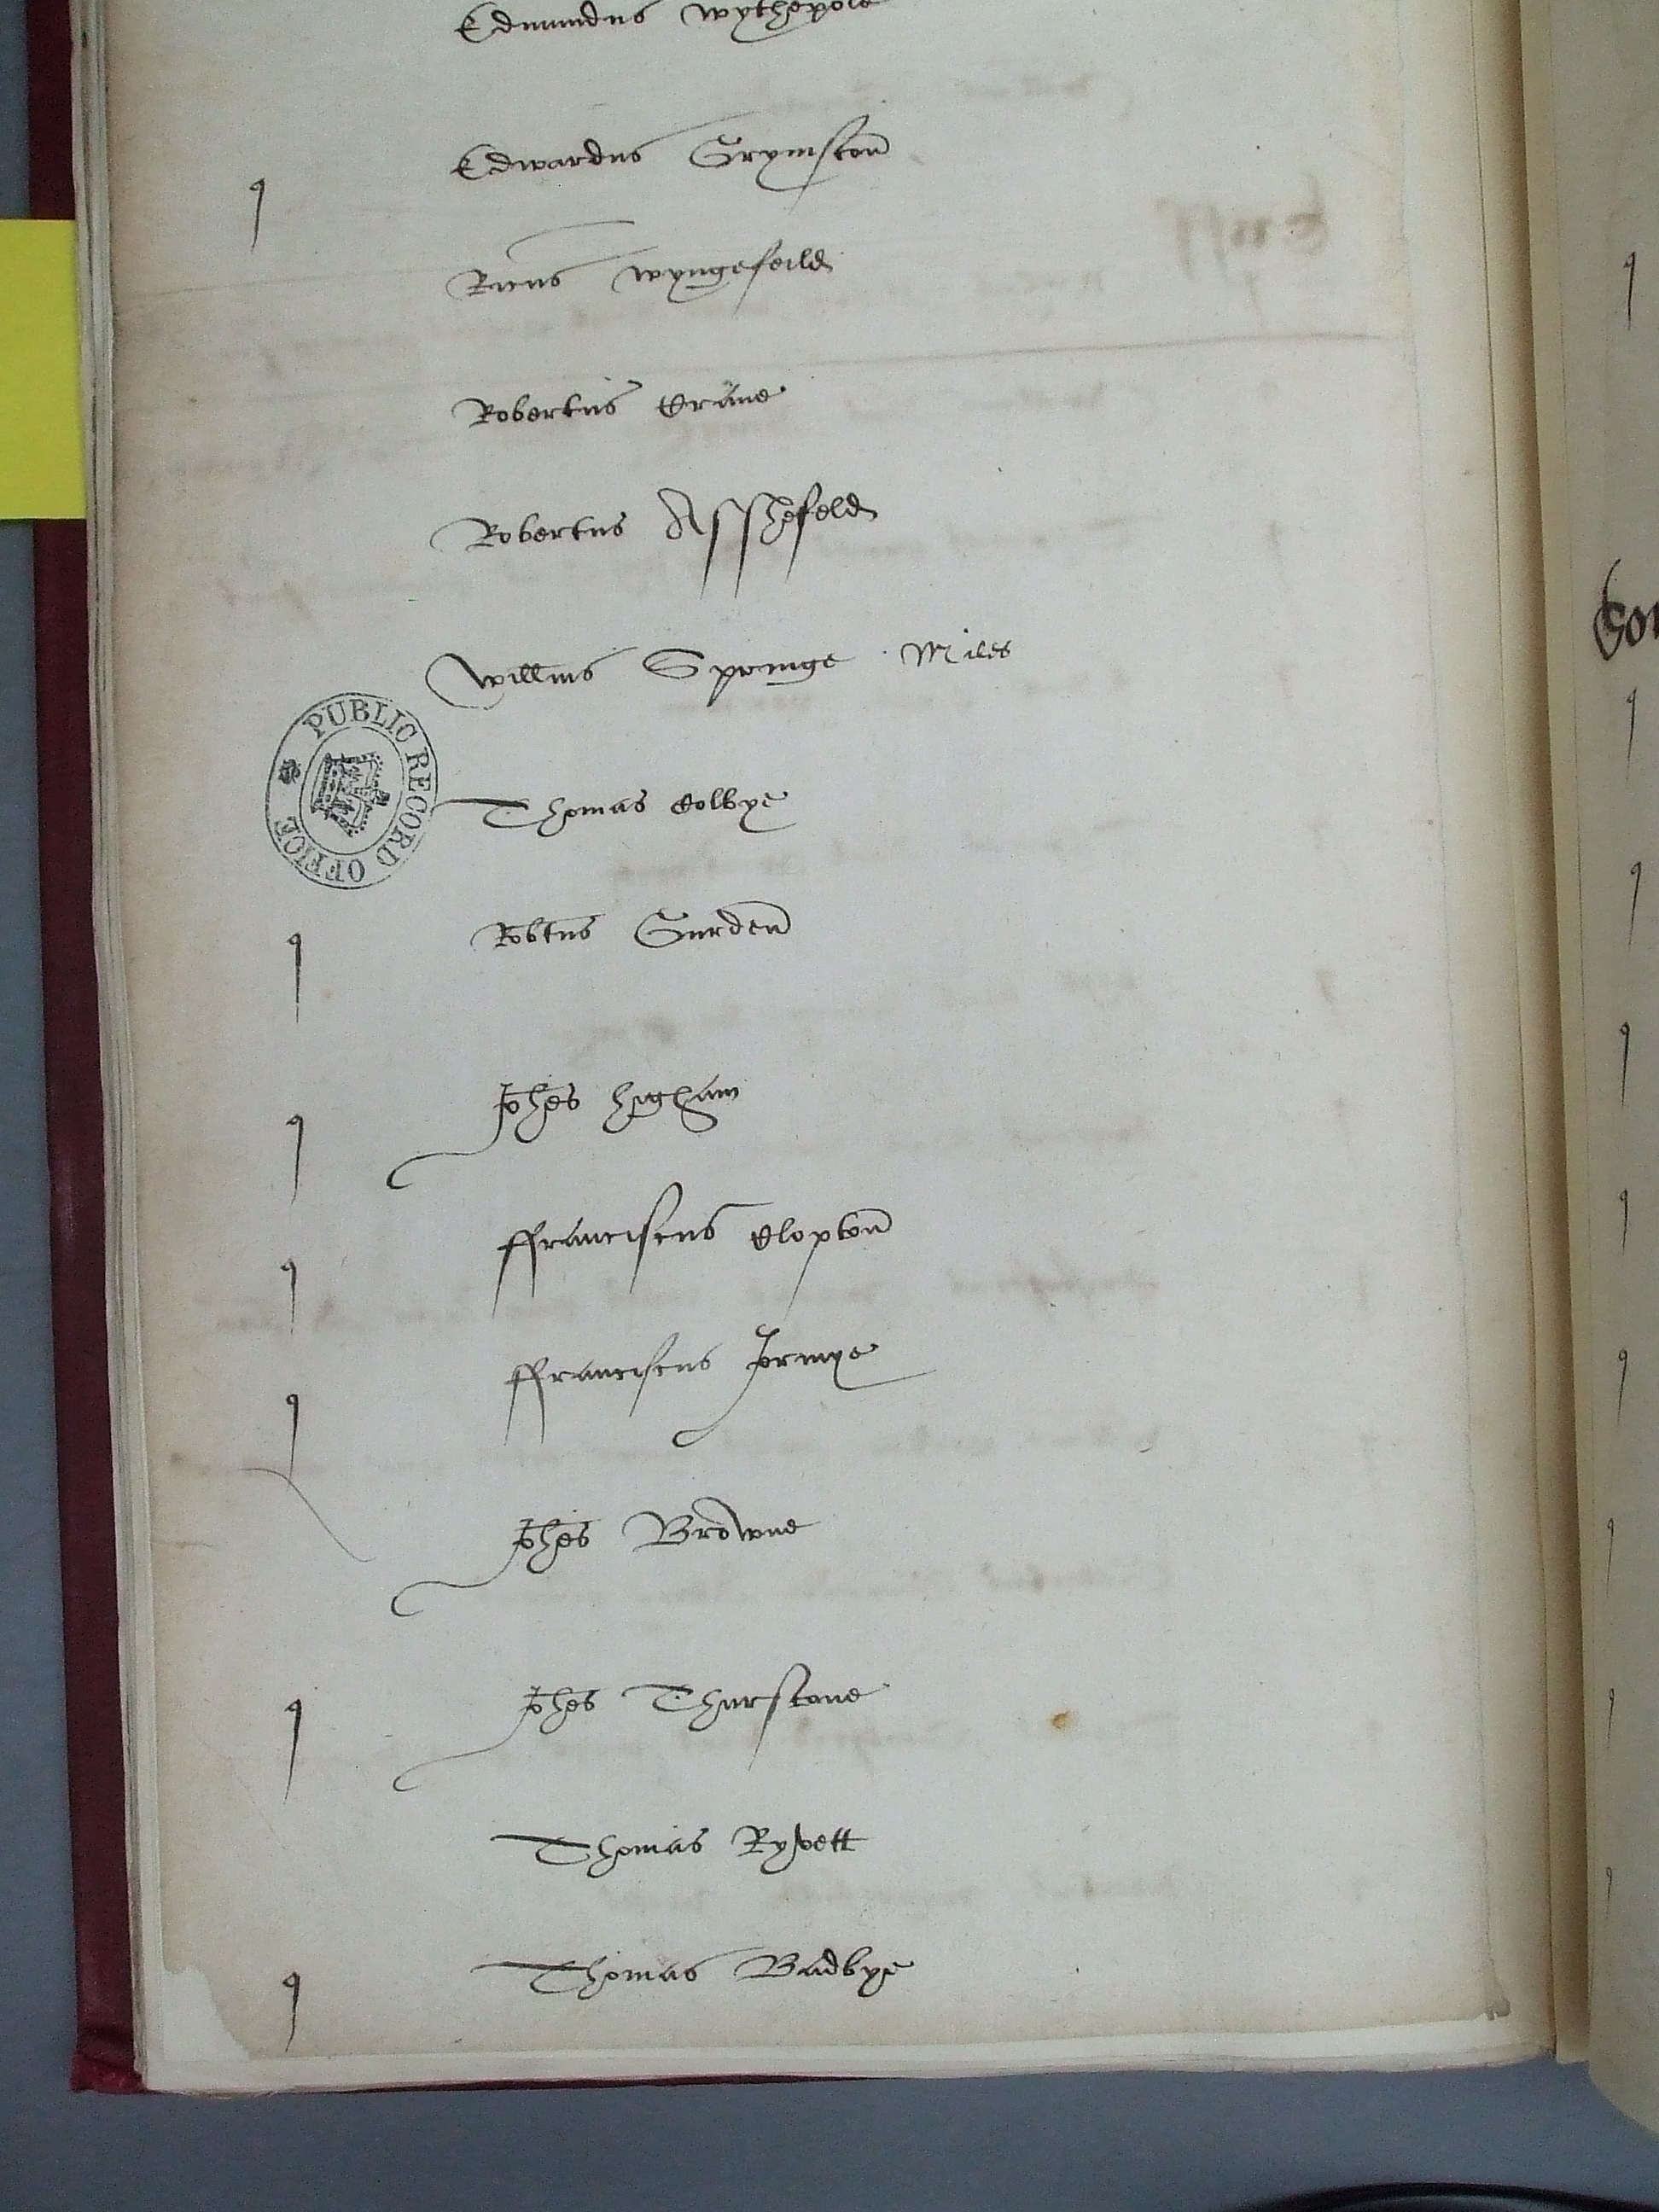 Edmundus Wythepole
Edwardus Grymston
Ricus Wyngefeild
Robertus Crane
Robertus Asshefeld
Willms Springe Miles
PUBLIC RECORD OFFICE
Thomas Colbye
Robtus Gurden
Johes Higham
ffranciscus Clopton
ffranciscus Jermye
Johes Browne
Johes Thurstone
Thomas Ryvett
Thomas Badbye